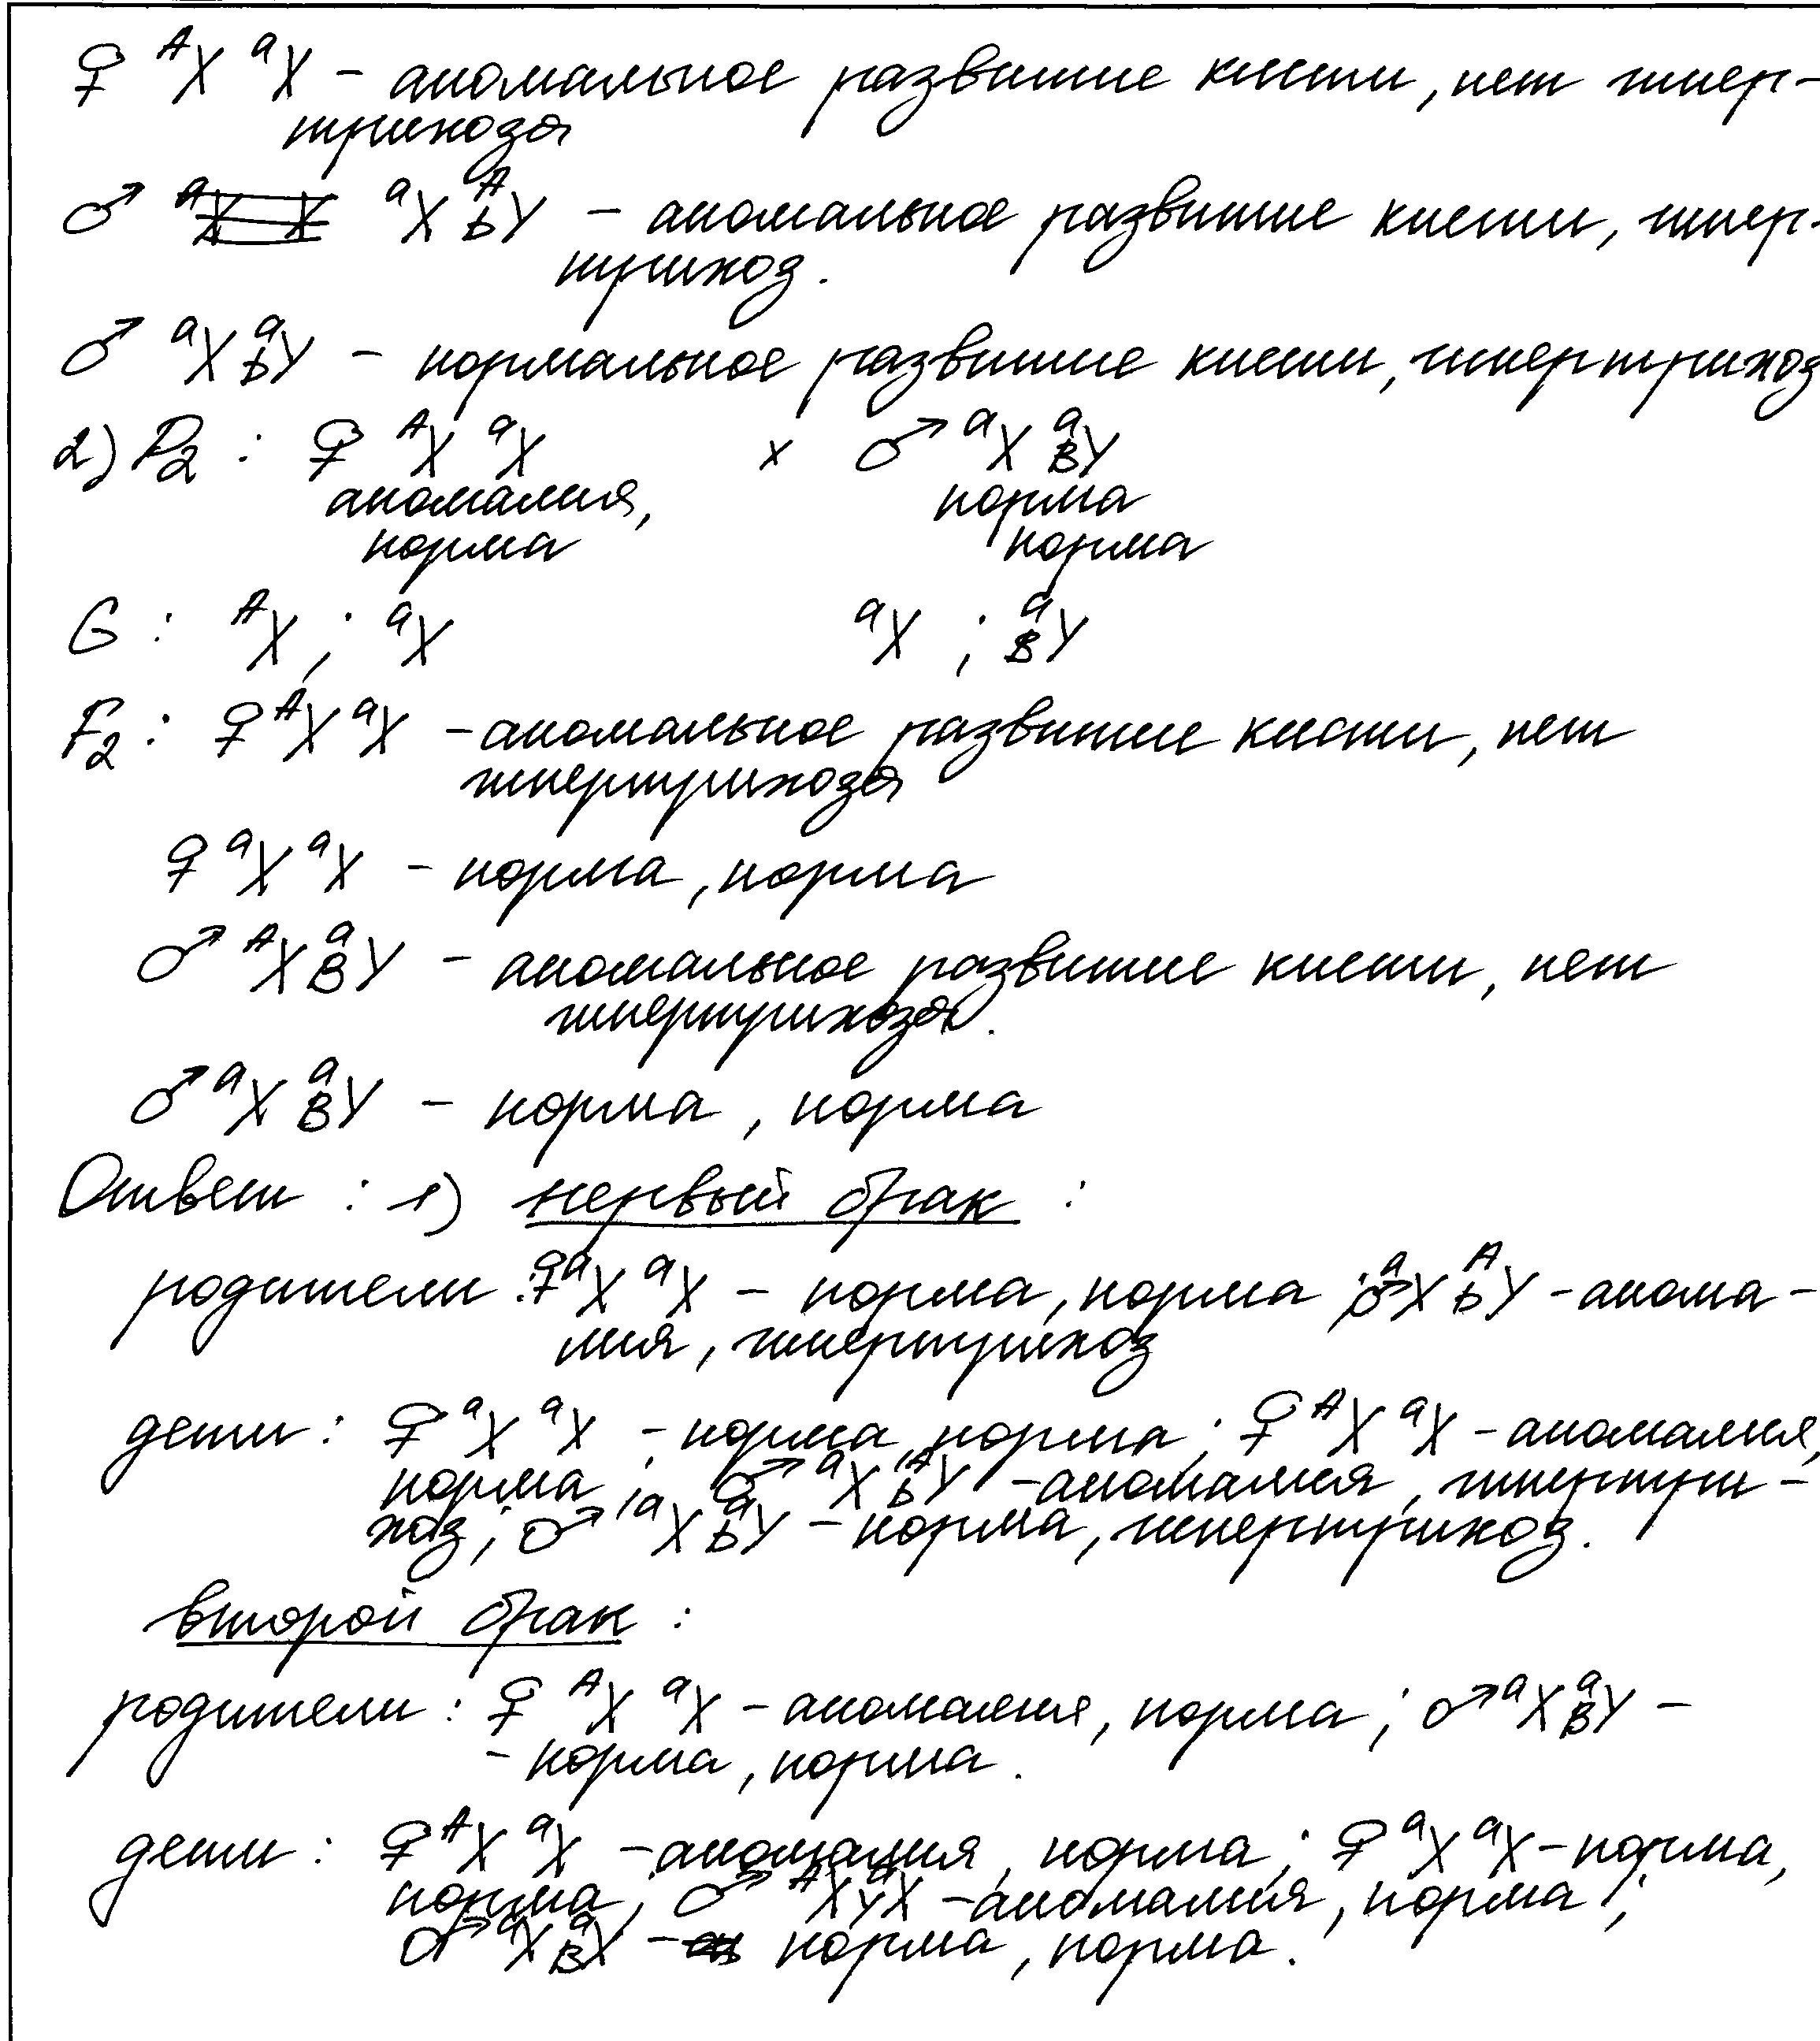 ♀ ᴬX ᵃX – аномальное развитие кисти, нет гипер-
трихоза
♂ ᵃX ᴬbY – аномальное развитие кисти, гипер-
трихоз.
♂ ᵃX ᵃbY – нормальное развитие кисти, гипертрихоз
2) P₂ : ♀ ᴬX ᵃX × ♂ ᵃX ᵃBY
аномалия, норма
норма норма
G : ᴬX ; ᵃX ᵃX ; ᵃBY
F₂ : ♀ ᴬX ᵃX – аномальное развитие кисти, нет
гипертрихоза
♀ ᵃX ᵃX – норма, норма
♂ ᴬX ᵃBY – аномальное развитие кисти, нет
гипертрихоза.
♂ ᵃX ᵃBY – норма, норма
Ответ : 1) первый брак :
родители : ♀ ᵃX ᵃX – норма, норма ; ♂ ᵃX ᴬbY – анома-
лия, гипертрихоз
дети : ♀ ᵃX ᵃX – норма, норма ; ♀ ᴬX ᵃX – аномалия,
норма ; ♂ ᵃX ᴬbY – аномалия, гипертри-
хоз ; ♂ ᵃX ᵃbY – норма, гипертрихоз.
второй брак :
родители : ♀ ᴬX ᵃX – аномалия, норма ; ♂ ᵃX ᵃBY –
– норма, норма.
дети : ♀ ᴬX ᵃX – аномалия, норма ; ♀ ᵃX ᵃX – норма,
норма ; ♂ – аномалия, норма ;
♂ ᵃX ᵃBX – норма, норма.